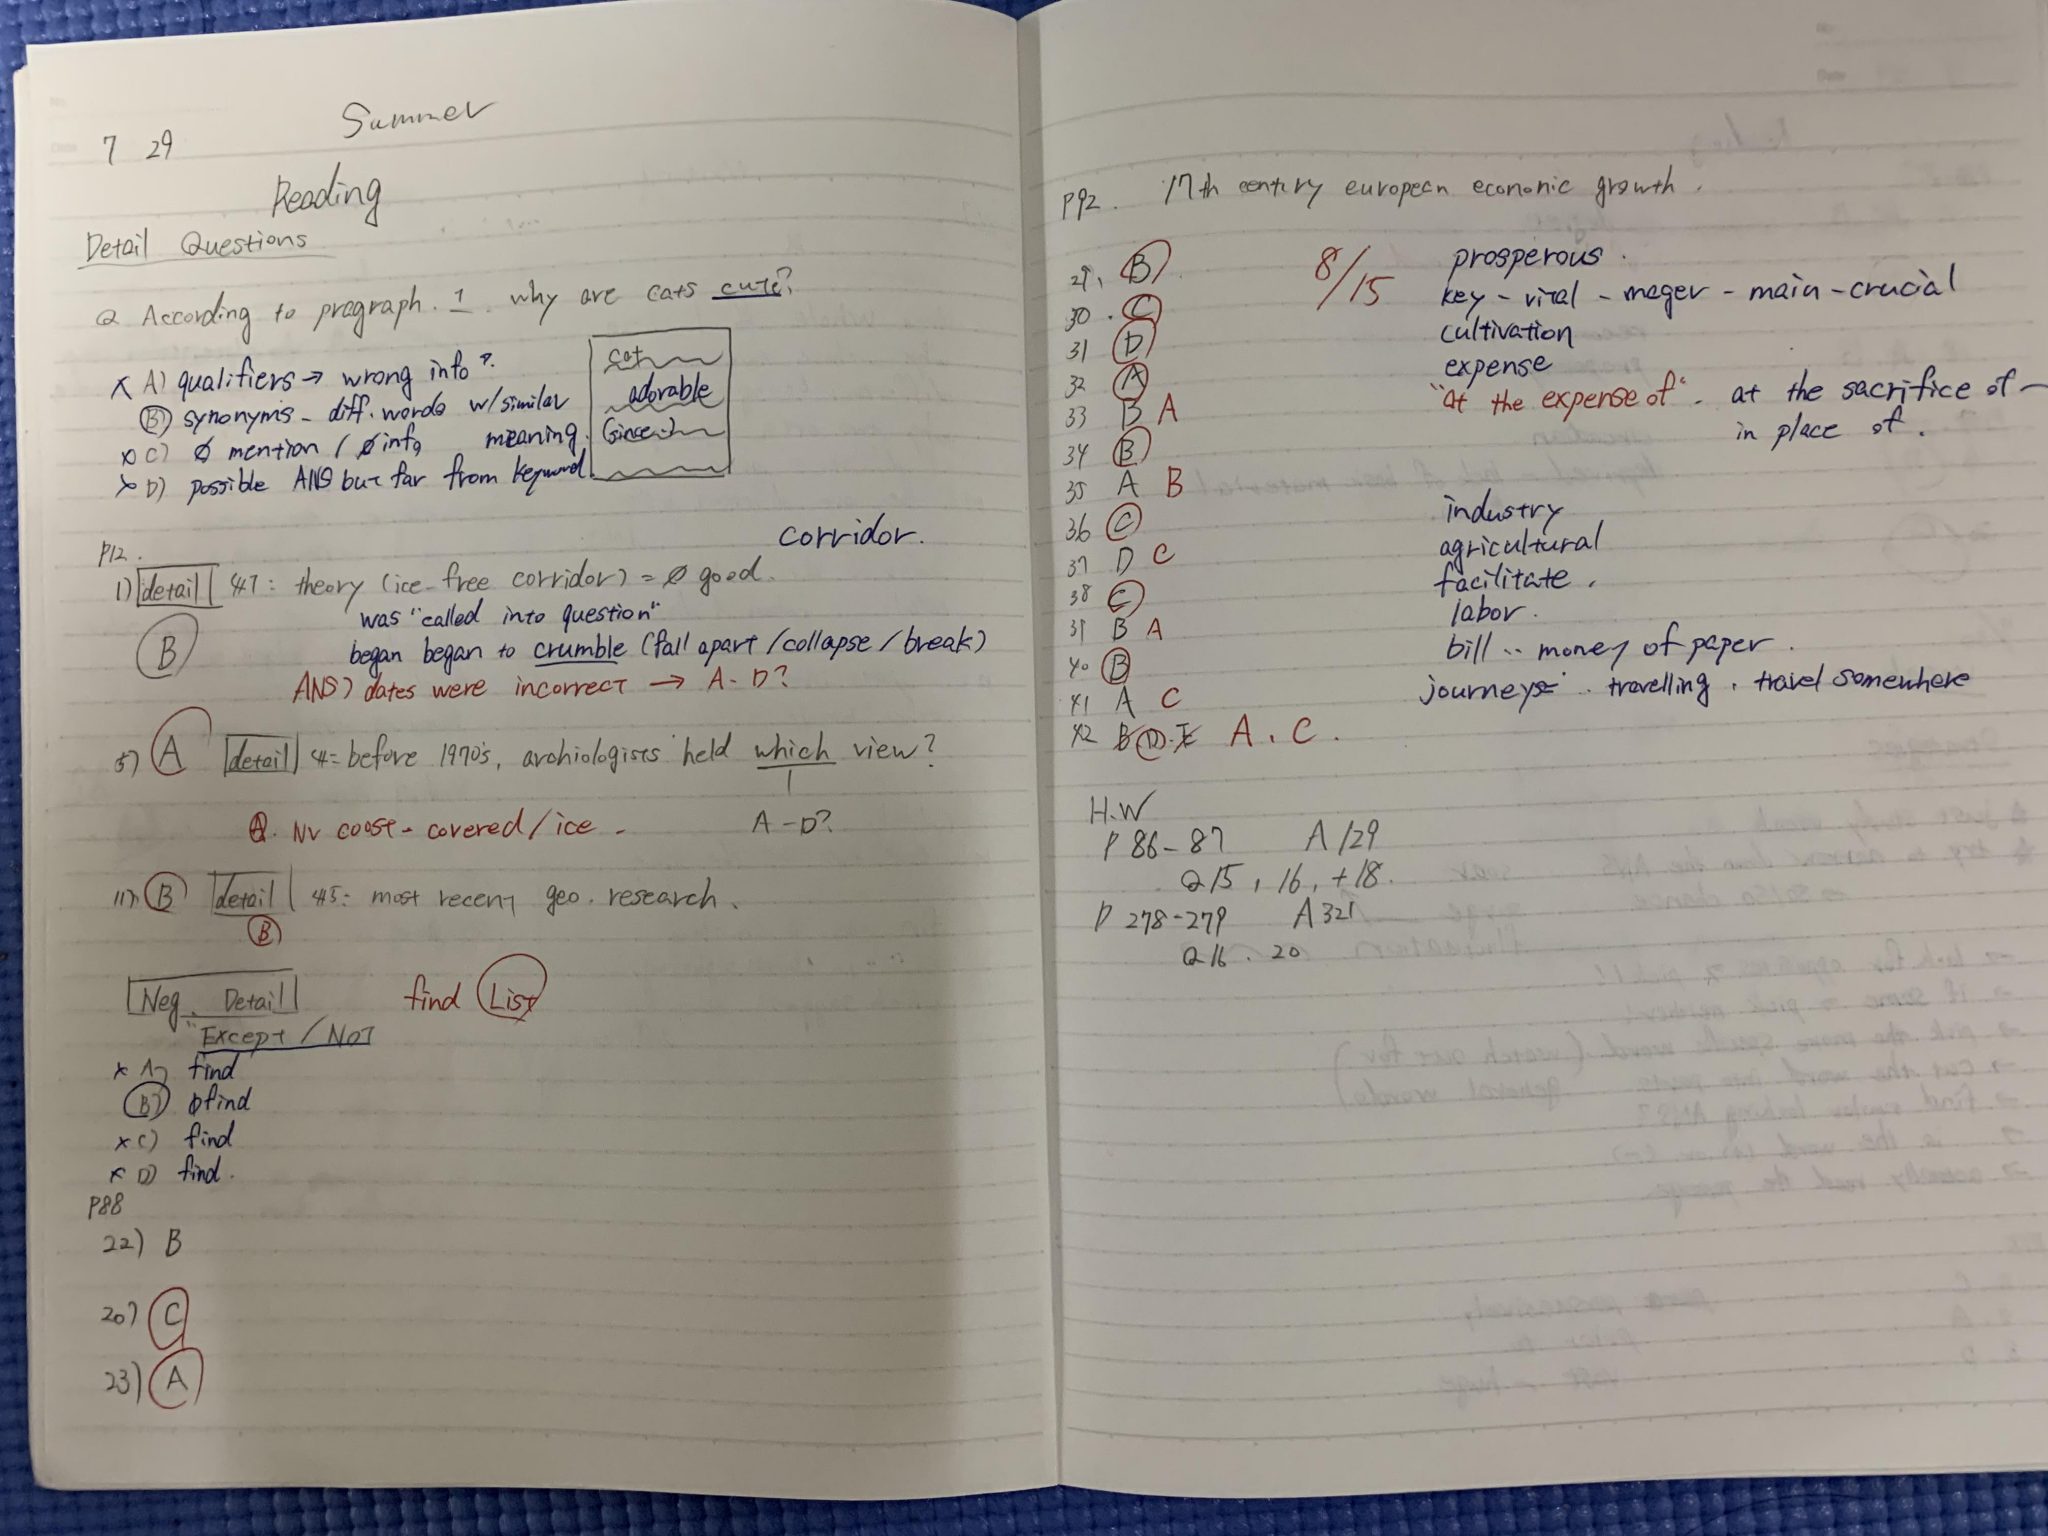 7 29
Summer
Reading
Detail Questions
Q According to pragraph. 1. why are cats cute?
x A) qualifiers → wrong info?
B) synonyms - diff. words w/ similar meaning.
x C) ∅ mention / ∅ info
x D) possible ANS but far from keyword.
cat
adorable
(since..)
P12.
corridor.
1) detail #7: theory (ice-free corridor) = ∅ good.
was "called into question"
B
began began to crumble (fall apart / collapse / break)
ANS) dates were incorrect → A-D?
5) A detail #= before 1970's, archiologists held which view?
Q. NV coost - covered / ice -
A-D?
11) B detail #5: most recent geo. research.
B
Neg. Detail find List
"Except / NOT
x A) find
B) ∅find
x C) find
x D) find.
P88
22) B
20) C
23) A
P92. 17th century european economic growth.
29, B
30. C
31 D
32 A
33 B A
34 B
35 A B
36 C
37 D C
38 C
39 B A
40 B
41 A C
42 B D. E A, C.
8/15
prosperous.
key - vital - mager - main - crucial
cultivation
expense
"at the expense of" - at the sacrifice of -
in place of.
industry
agricultural
facilitate.
labor.
bill -- money of paper.
journeys . travelling . travel somewhere
H.W
P 86-87 A 129
Q15, 16, +18.
P 278-279 A 321
Q16. 20